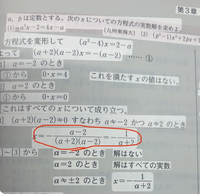 第3章
a, pは定数とする。次のxについての方程式の実数解を求めよ。
(1) a²x-2=4x-a
[九州東海大]
方程式を変形して (a²-4)x=2-a
(a+2)(a-2)x=-(a-2) ……①
a=-2のとき
①から 0・x=4 これを満たすxの値はない。
a=2のとき
①から 0・x=0
これはすべてのxについて成り立つ。
(a+2)(a-2)≠0 すなわち a≠-2かつa≠2のとき
x=-(a-2)/((a+2)(a-2))=-1/(a+2)
a=-2のとき 解はない
a=2のとき 解はすべての実数
a≠±2のとき x=-1/(a+2)